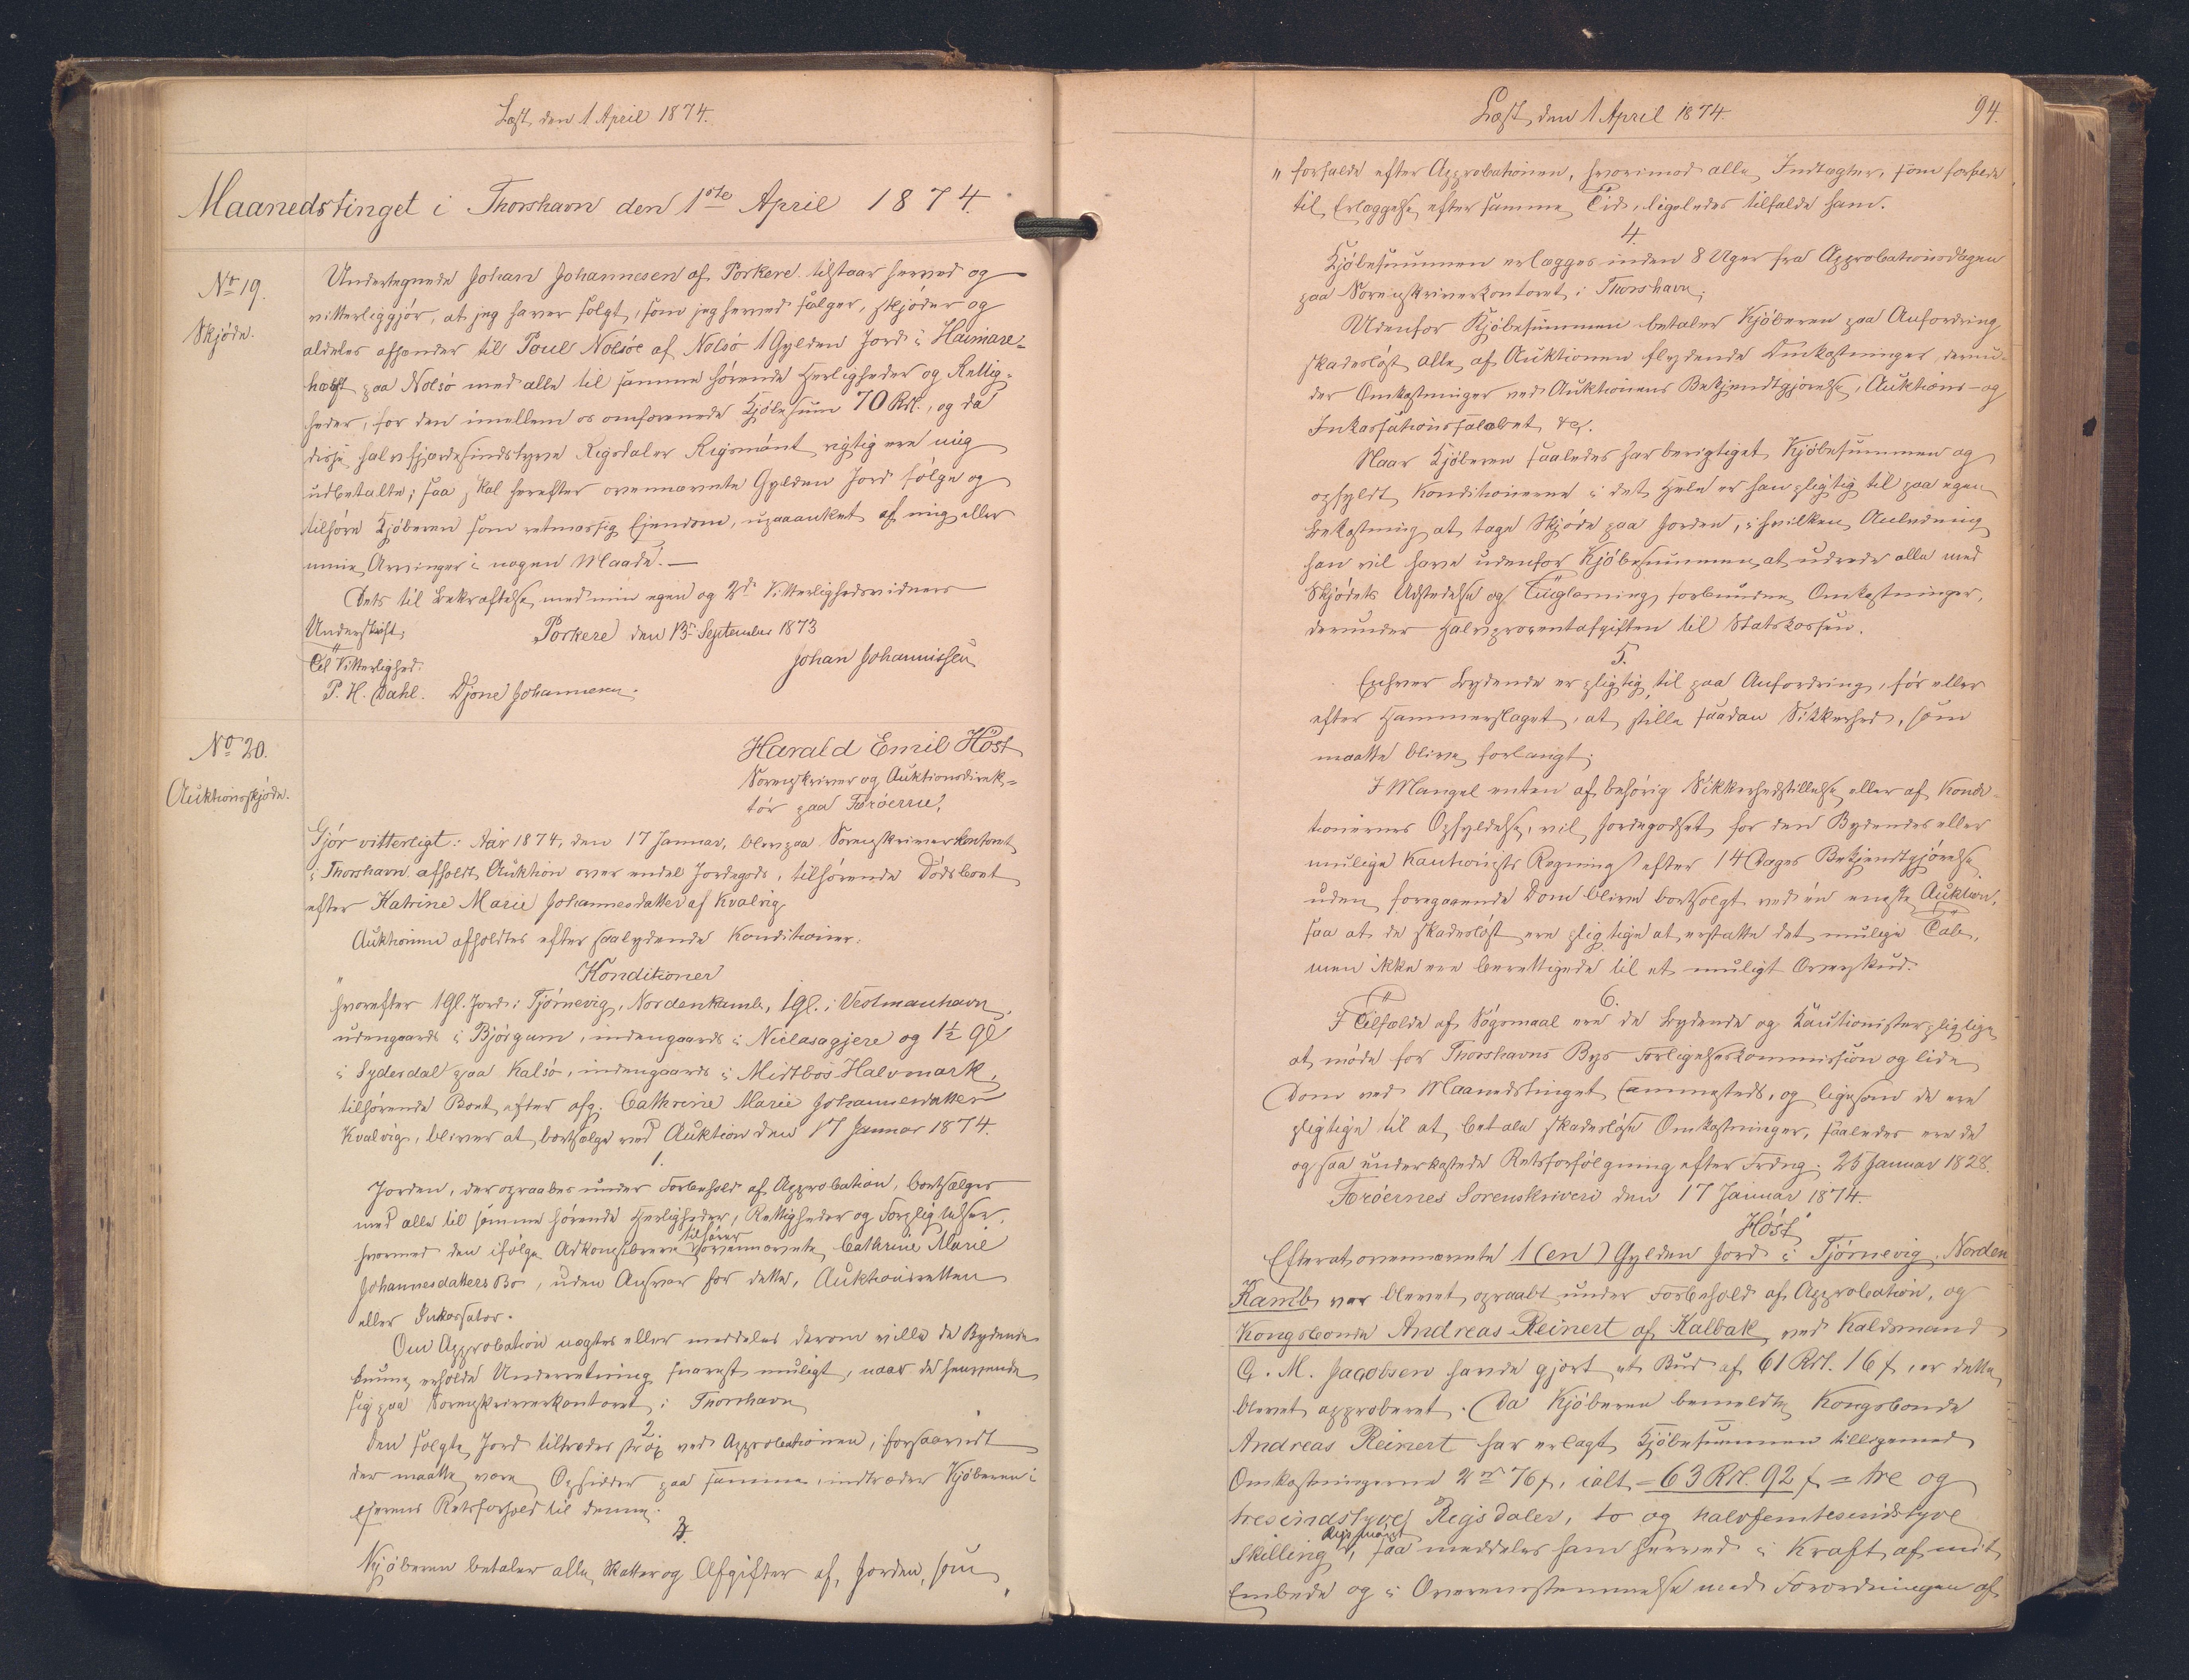 Læst den 1 April 1874.
Maanedstinget i Thorshavn den 1ste April 1874.
No 19.
Skjøde.
Undertegnede Johan Johannesen af Porkere tilstaar herved og
vitterliggjør, at jeg haver solgt, som jeg herved sælger, skjøder og
aldeles afhænder til Poul Nolsöe af Nolsö 1 Gylden Jord i Haimare-
hœyst paa Nolsö med alle til samme hörende Herligheder og Rettig-
heder, for den imellem os omforenede Kjöbesum 70 Rdl., og da
disse halvfjerdesindstyve Rigsdaler Rigsmönt rigtig ere mig
udbetalte; saa skal herefter ovennævnte Gylden Jord fölge og
tilhöre Kjöberen som retmæssig Ejendom, upaaanket af mig eller
mine Arvinger i nogen Maade. —
Dets til Bekræftelse med min egen og 2de Vitterlighedsvidners
Underskrift.
Porkere den 13de September 1873
Til Vitterlighed:
Johan Johannissen
P. H. Dahl. Djone Johannesen.
No 20.
Auktionsskjöde.
Harald Emil Höst
Sorenskriver og Auktionsdirek-
tör paa Færöerne,
Gjör vitterligt: Aar 1874, den 17 Januar, blev paa Sorenskriverkontoret
i Thorshavn afholdt Auktion over endel Jordegods, tilhörende Dödsboet
efter Katrine Marie Johannesdatter af Kvalvig
Auktionen afholdtes efter saalydende Konditioner:
" Konditioner
hvorefter 1 Gl. Jord i Tjörnevig, Nordenkamb, 1 gl. i Vestmanhavn,
udengaards i Bjørgum, indengaards i Niclasagjere og 1½ Gl
i Syderdal paa Kalsö, indengaards i Midtbös Halvmark,
tilhörende Boet efter afg. Cathrine Marie Johannesdatter
Kvalvig, bliver at bortsælge ved Auktion den 17 Januar 1874.
1.
Jorden, der opraabes under Forbehold af Approbation, bortsælges
med alle til samme hörende Herligheder, Rettigheder og Forpligtelser,
hvormed den ifölge Adkomstbreve tilhører ovennævnte Cathrine Marie
Johannesdatters Bo, uden Ansvar for dette, Auktionsretten
eller Inkassator.
Om Approbation nægtes eller meddeles derom ville de Bydende
kunne erholde Underretning snarest muligt, naar de henvende
sig paa Sorenskriverkontoret i Thorshavn
2.
Den solgte Jord tiltrædes strax ved Approbationen, i forsaavidt
der maatte være Opsidder paa samme, indtræder Kjöberen i
Ejerens Retsforhold til denne.
3.
Kjöberen betaler alle Skatter og Afgifter af Jorden, som
Læst den 1 April 1874.
94.
" forfalde efter Approbationen, hvorimod alle Indtægter, som forfalde
til Erlæggelse efter samme Tid, ligeledes tilfalde ham.
4.
Kjöbesummen erlægges inden 8 Uger fra Approbationsdagen
paa Sorenskriverkontoret i Thorshavn;
Udenfor Kjöbesummen betaler Kjöberen paa Anfordring
skadeslöst alle af Auktionen flydende Omkostninger, derun-
der Omkostninger ved Auktionens Bekjendtgjörelse, Auktions- og
Inkassationssalæret &c.
Naar Kjöberen saaledes har berigtiget Kjöbesummen og
opfyldt Konditionerne i det Hele er han pligtig til paa egen
Bekostning at tage Skjöde paa Jorden, i hvilken Anledning
han vil have udenfor Kjöbesummen at udrede alle med
Skjödets Udstedelse og Tinglæsning forbundne Omkostninger,
derunder Halvprocentafgiften til Statskassen.
5.
Enhver Bydende er pligtig til paa Anfordring, för eller
efter Hammerslaget, at stille saadan Sikkerhed, som
maatte blive forlangt;
I Mangel enten af behörig Sikkerhedsstillelse eller af Kondi-
tionernes Opfyldelse, vil Jordegodset for den Bydendes eller
mulige Kautionists Regning efter 14 Dages Bekjendtgjörelse,
uden foregaaende Dom blive bortsolgt ved en eneste Auktion,
saa at de skadeslöst ere pligtige at erstatte det mulige Tab,
men ikke ere berettigede til et muligt Overskud.
6.
I Tilfælde af Sögsmaal ere de Bydende og Kautionister pligtige
at möde for Thorshavns Byes Forligelseskommission og lide
Dom ved Maanedstinget sammesteds, og ligesom de ere
pligtige til at betale skadeslöse Omkostninger, saaledes ere de
ogsaa underkastede Retsforfölgning efter Frdng. 25 Januar 1828.
Færöernes Sorenskriveri den 17 Januar 1874.
Höst"
Efterat ovennævnte 1 (en) Gylden Jord i Tjörnevig, Norden
Kamb var blevet opraabt under Forbehold af Approbation, og
Kongsbonde Andreas Reinert af Kalbak ved Kaldsmand
G. M. Jacobsen havde gjort et Bud af 61 Rdl. 16 f, er dette
blevet approberet. Da Kjöberen bemeldte Kongsbonde
Andreas Reinert har erlagt Kjöbesummen tilligemed
Omkostningerne 2 Rd 76 f, ialt = 63 Rdl. 92 f = tre og
tresindstyve Rigsdaler, to og halvfemtesindstyve
Skilling Rigsmönt, saa meddeles ham herved i Kraft af mit
Embede og i Overensstemmelse med Forordningen af